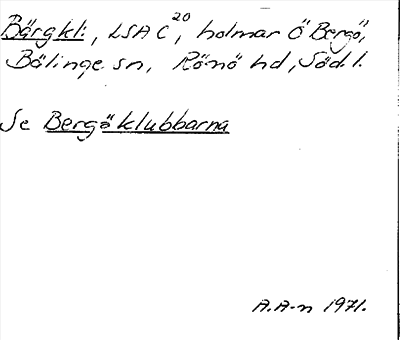 Bärgkl:, LSA C²⁰, holmar Ö Bergö,
Bälinge sn, Rönö hd, Södl.
Se Bergöklubbarna
A.A-n 1971.